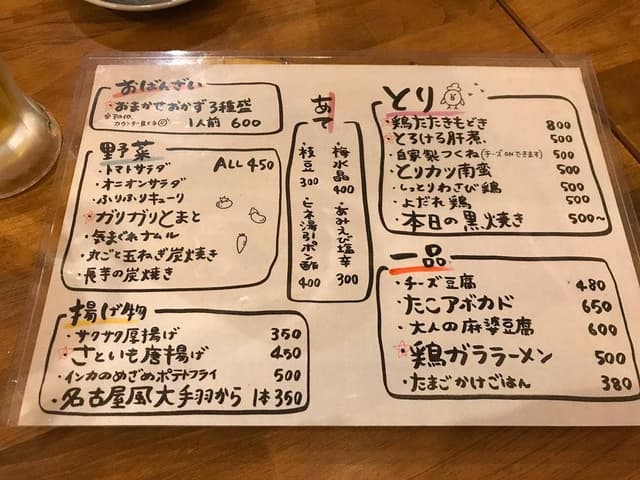 おばんざい
・おまかせおかず3種盛
1人前 600
野菜
・トマトサラダ ALL 450
・オニオンサラダ
・ふりふりキューリ
・ガリガリとまと
・気まぐれナムル
・丸ごと玉ねぎ炭焼き
・長芋の炭焼き
揚げ物
・サクサク厚揚げ 350
・さといも唐揚げ 450
・インカのめざめポテトフライ 500
・名古屋風大手羽から 1本350
あて
・梅水晶 400
・あみえび塩辛 300
・枝豆 300
・ヒネ湯引ポン酢 400
とり
・鶏たたきもどき 800
・とろける肝煮 500
・自家製つくね(チーズONできます) 500
・とりカツ南蛮 500
・しっとりわさび鶏 500
・よだれ鶏 500
・本日の黒焼き 500~
一品
・チーズ豆腐 480
・たこアボカド 650
・大人の麻婆豆腐 600
・鶏ガララーメン 500
・たまごかけごはん 380